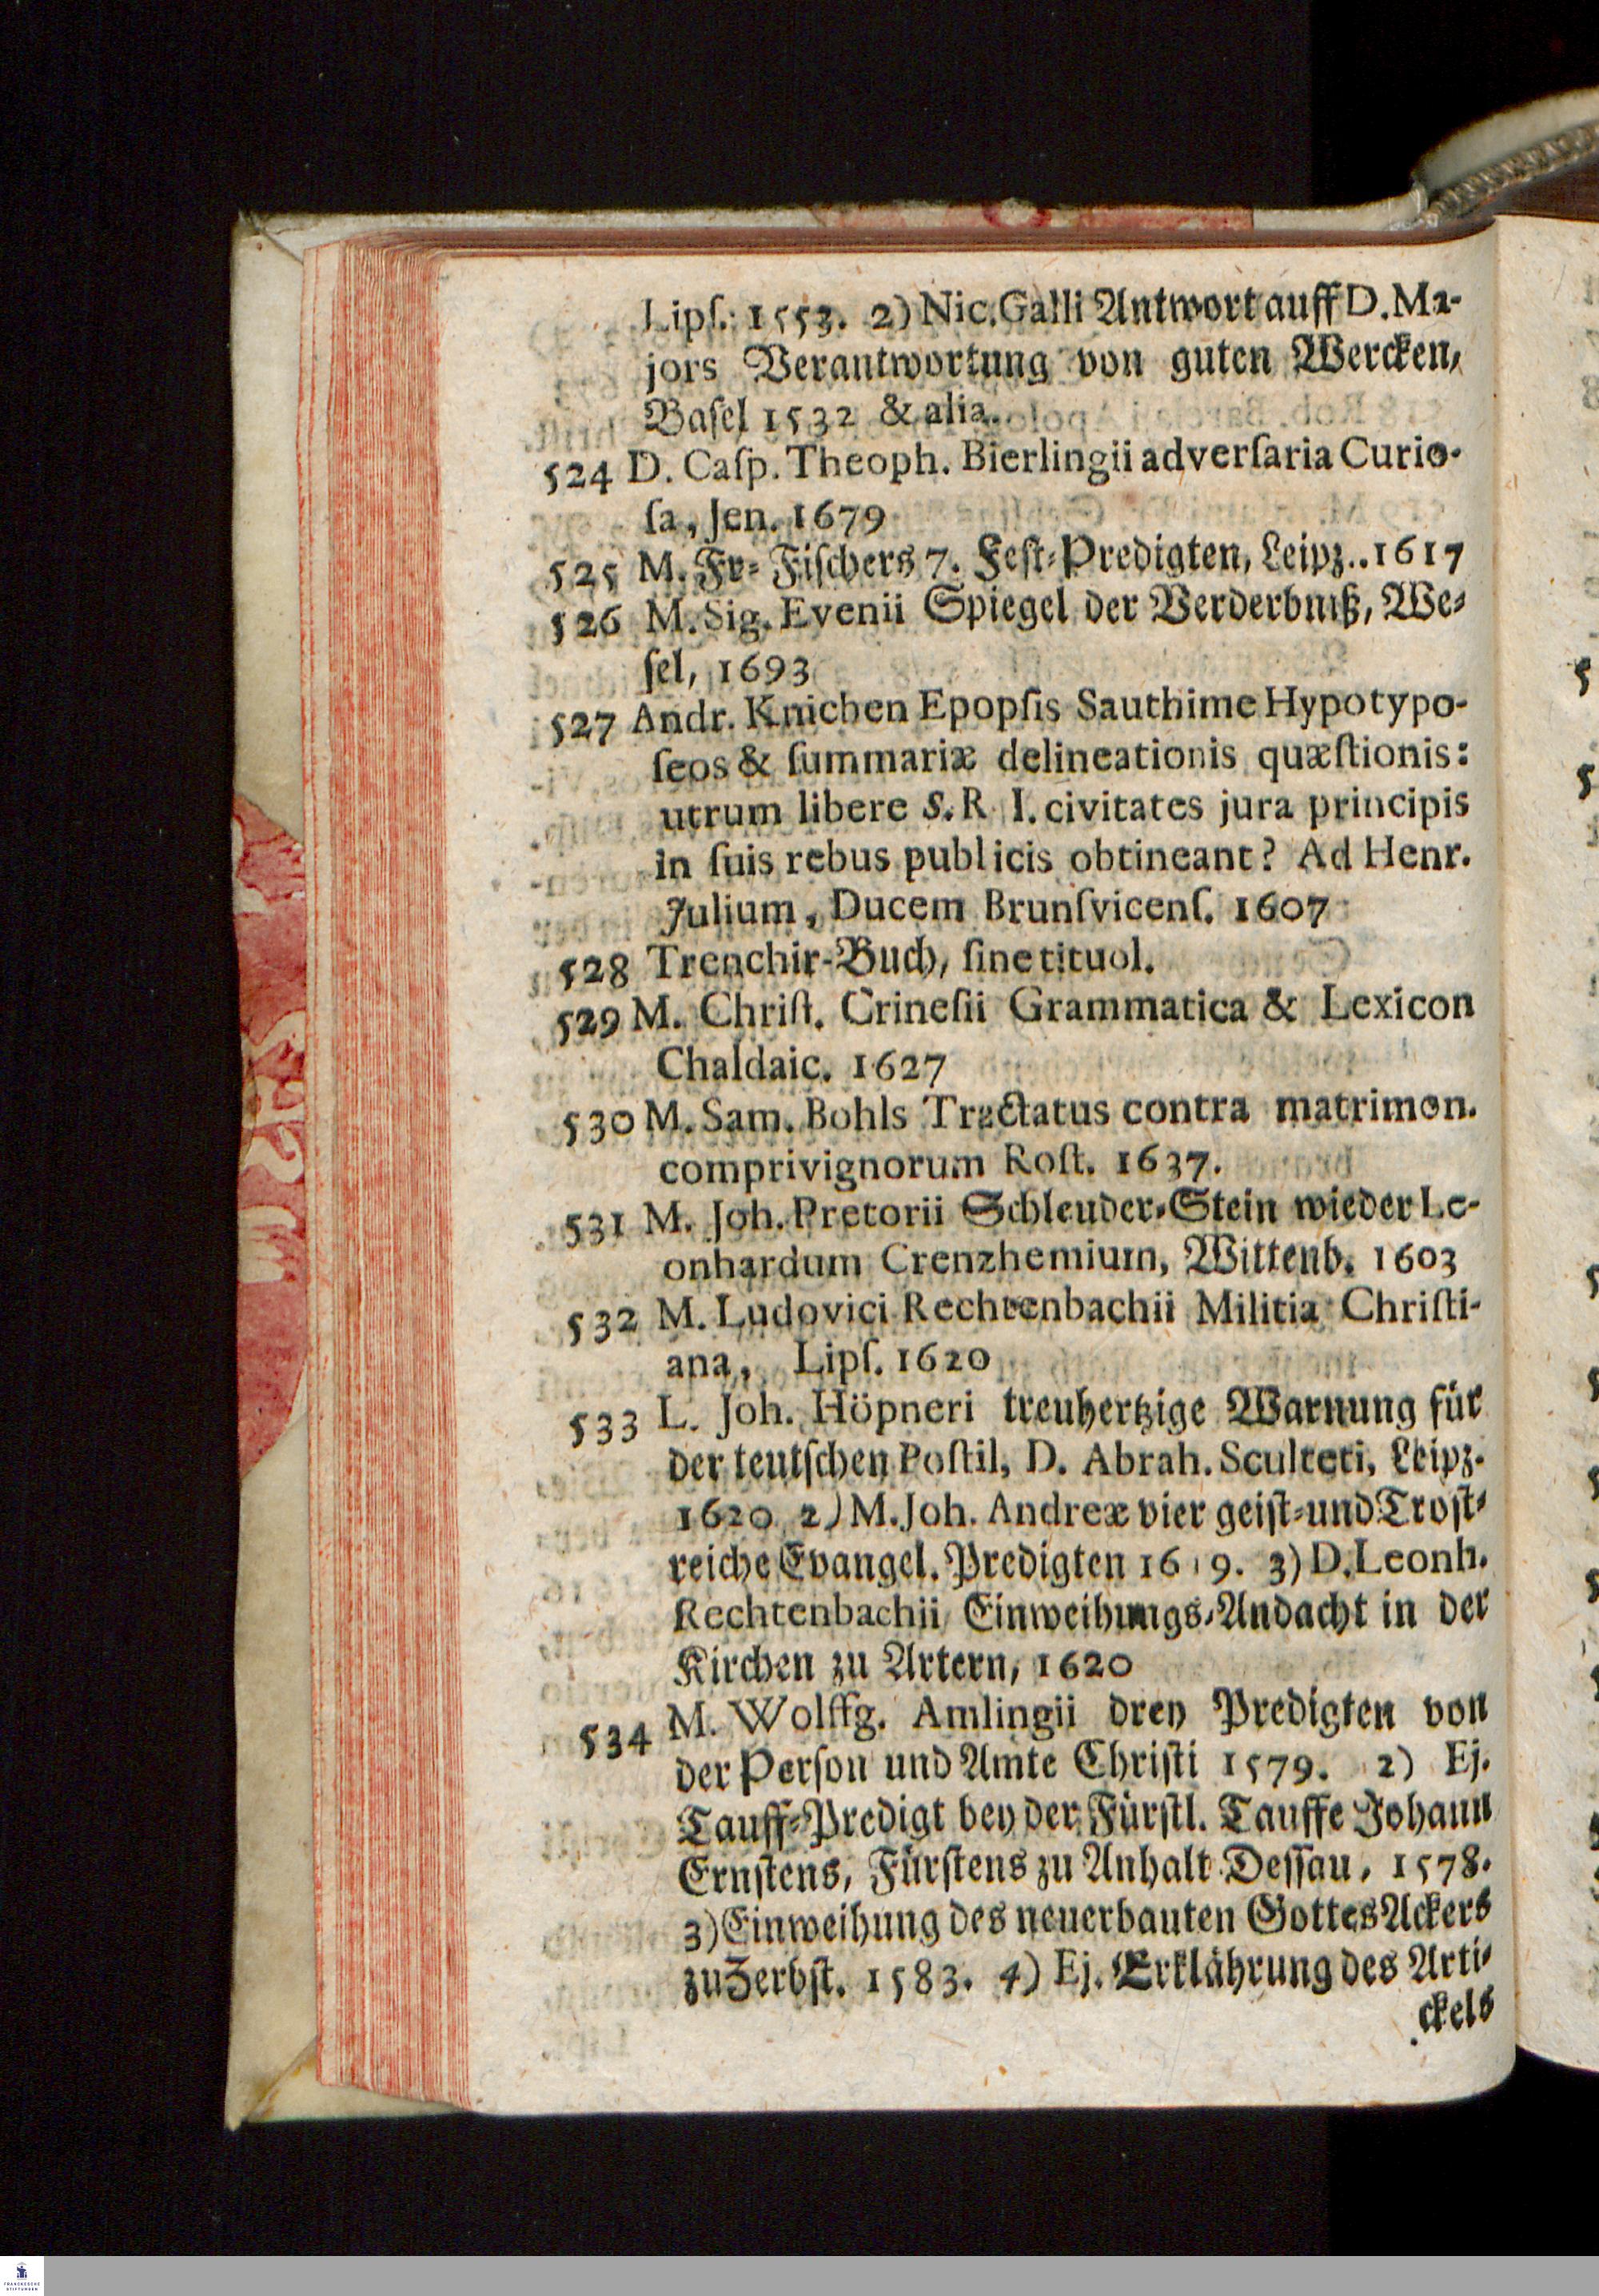 Lipſ. 1553. 2) Nic. Galli Antwort auff D. Ma-
jors Verantwortung von guten Wercken,
Baſel 1532 & alia.
524 D. Caſp. Theoph. Bierlingii adverſaria Curio-
ſa, Jen. 1679
525 M. Fr= Fiſchers 7. Feſt=Predigten, Leipz.. 1617
526 M. Sig. Evenii Spiegel der Verderbniß, We=
ſel, 1693
527 Andr. Knichen Epopſis Sauthime Hypotypo-
ſeos & ſummariæ delineationis quæſtionis:
utrum libere S. R I. civitates jura principis
in ſuis rebus publicis obtineant? Ad Henr.
Julium, Ducem Brunſvicenſ. 1607
528 Trenchir-Buch, ſine tituol.
529 M. Chriſt. Crineſii Grammatica & Lexicon
Chaldaic. 1627
530 M. Sam. Bohls Tractatus contra matrimon.
comprivignorum Roſt. 1637.
531 M. Joh. Pretorii Schleuder=Stein wieder Le-
onhardum Crenzhemium, Wittenb. 1603
532 M. Ludovici Rechtenbachii Militia Chriſti-
ana, Lipſ. 1620
533 L. Joh. Höpneri treuhertzige Warnung für
der teutſchen Poſtil, D. Abrah. Sculteti, Leipz.
1620 2) M. Joh. Andreæ vier geiſt=und Troſt=
reiche Evangel. Predigten 1619. 3) D. Leonh.
Rechtenbachii Einweihungs=Andacht in der
Kirchen zu Artern, 1620
534 M. Wolffg. Amlingii drey Predigten von
der Perſon und Amte Chriſti 1579. 2) Ej.
Tauff=Predigt bey der Fürſtl. Tauffe Johann
Ernſtens, Fürſtens zu Anhalt Deſſau, 1578.
3) Einweihung des neuerbauten Gottes Ackers
zu Zerbſt. 1583. 4) Ej. Erklährung des Arti=
ckels
FRANCKESCHE
STIFTUNGEN